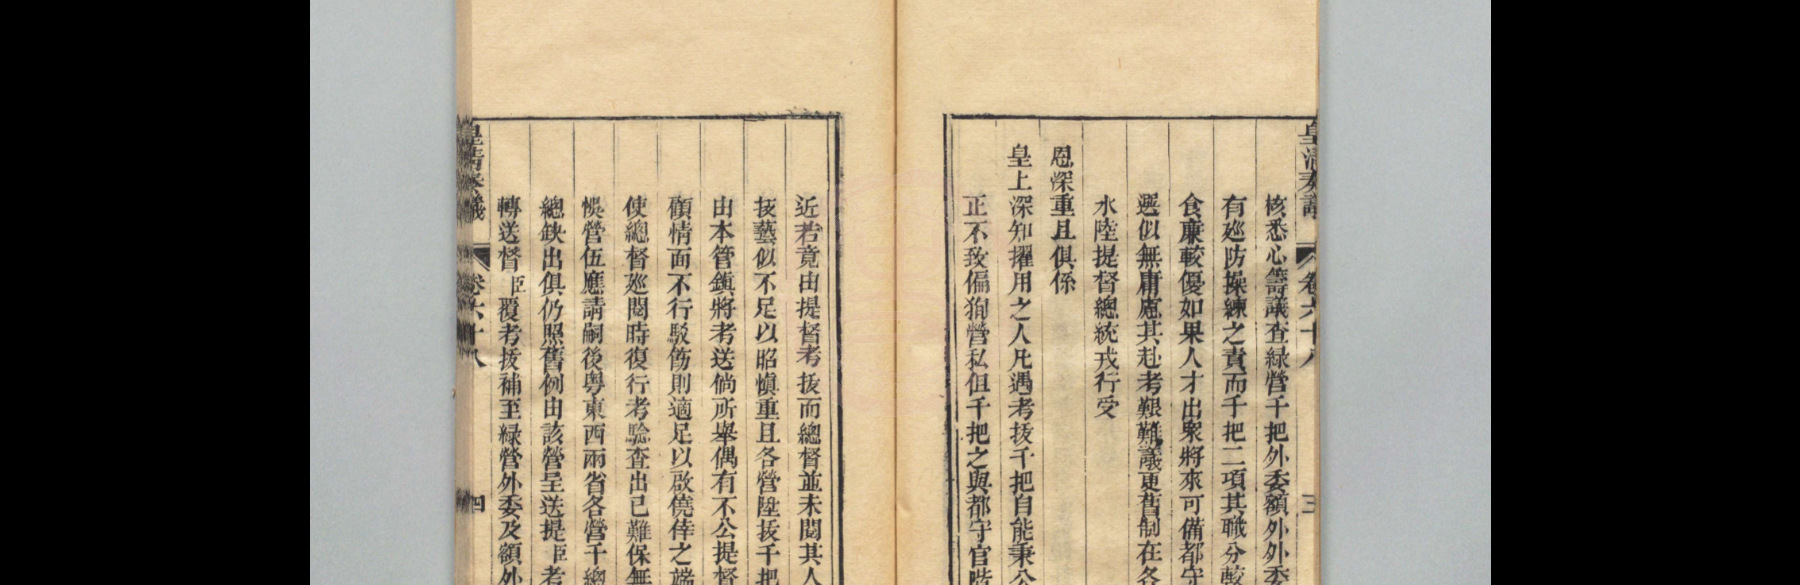 皇清奏議
卷六十八
三
核悉心籌議查緑營千把外委額外外委
有廵防操練之責而千把二項其職分較
食亷較優如果人才出衆將來可備都守
選似無庸慮其赴考艱難議更舊制在各
水陸提督總統戎行受
恩深重且俱係
皇上深知擢用之人凡遇考拔千把自能秉公
正不致偏狥營私但千把之與都守官階
近若竟由提督考拔而總督並未閱其人
技藝似不足以昭愼重且各營陞拔千把
由本管鎭將考送倘所舉偶有不公提督
顧情面不行駁飭則適足以啟僥倖之端
使總督廵閱時復行考驗查出已難保無
悞營伍應請嗣後粤東西兩省各營千總
總缺出俱仍照舊例由該營呈送提臣考
轉送督臣覆考拔補至緑營外委及額外
皇清奏議
卷六十八
四